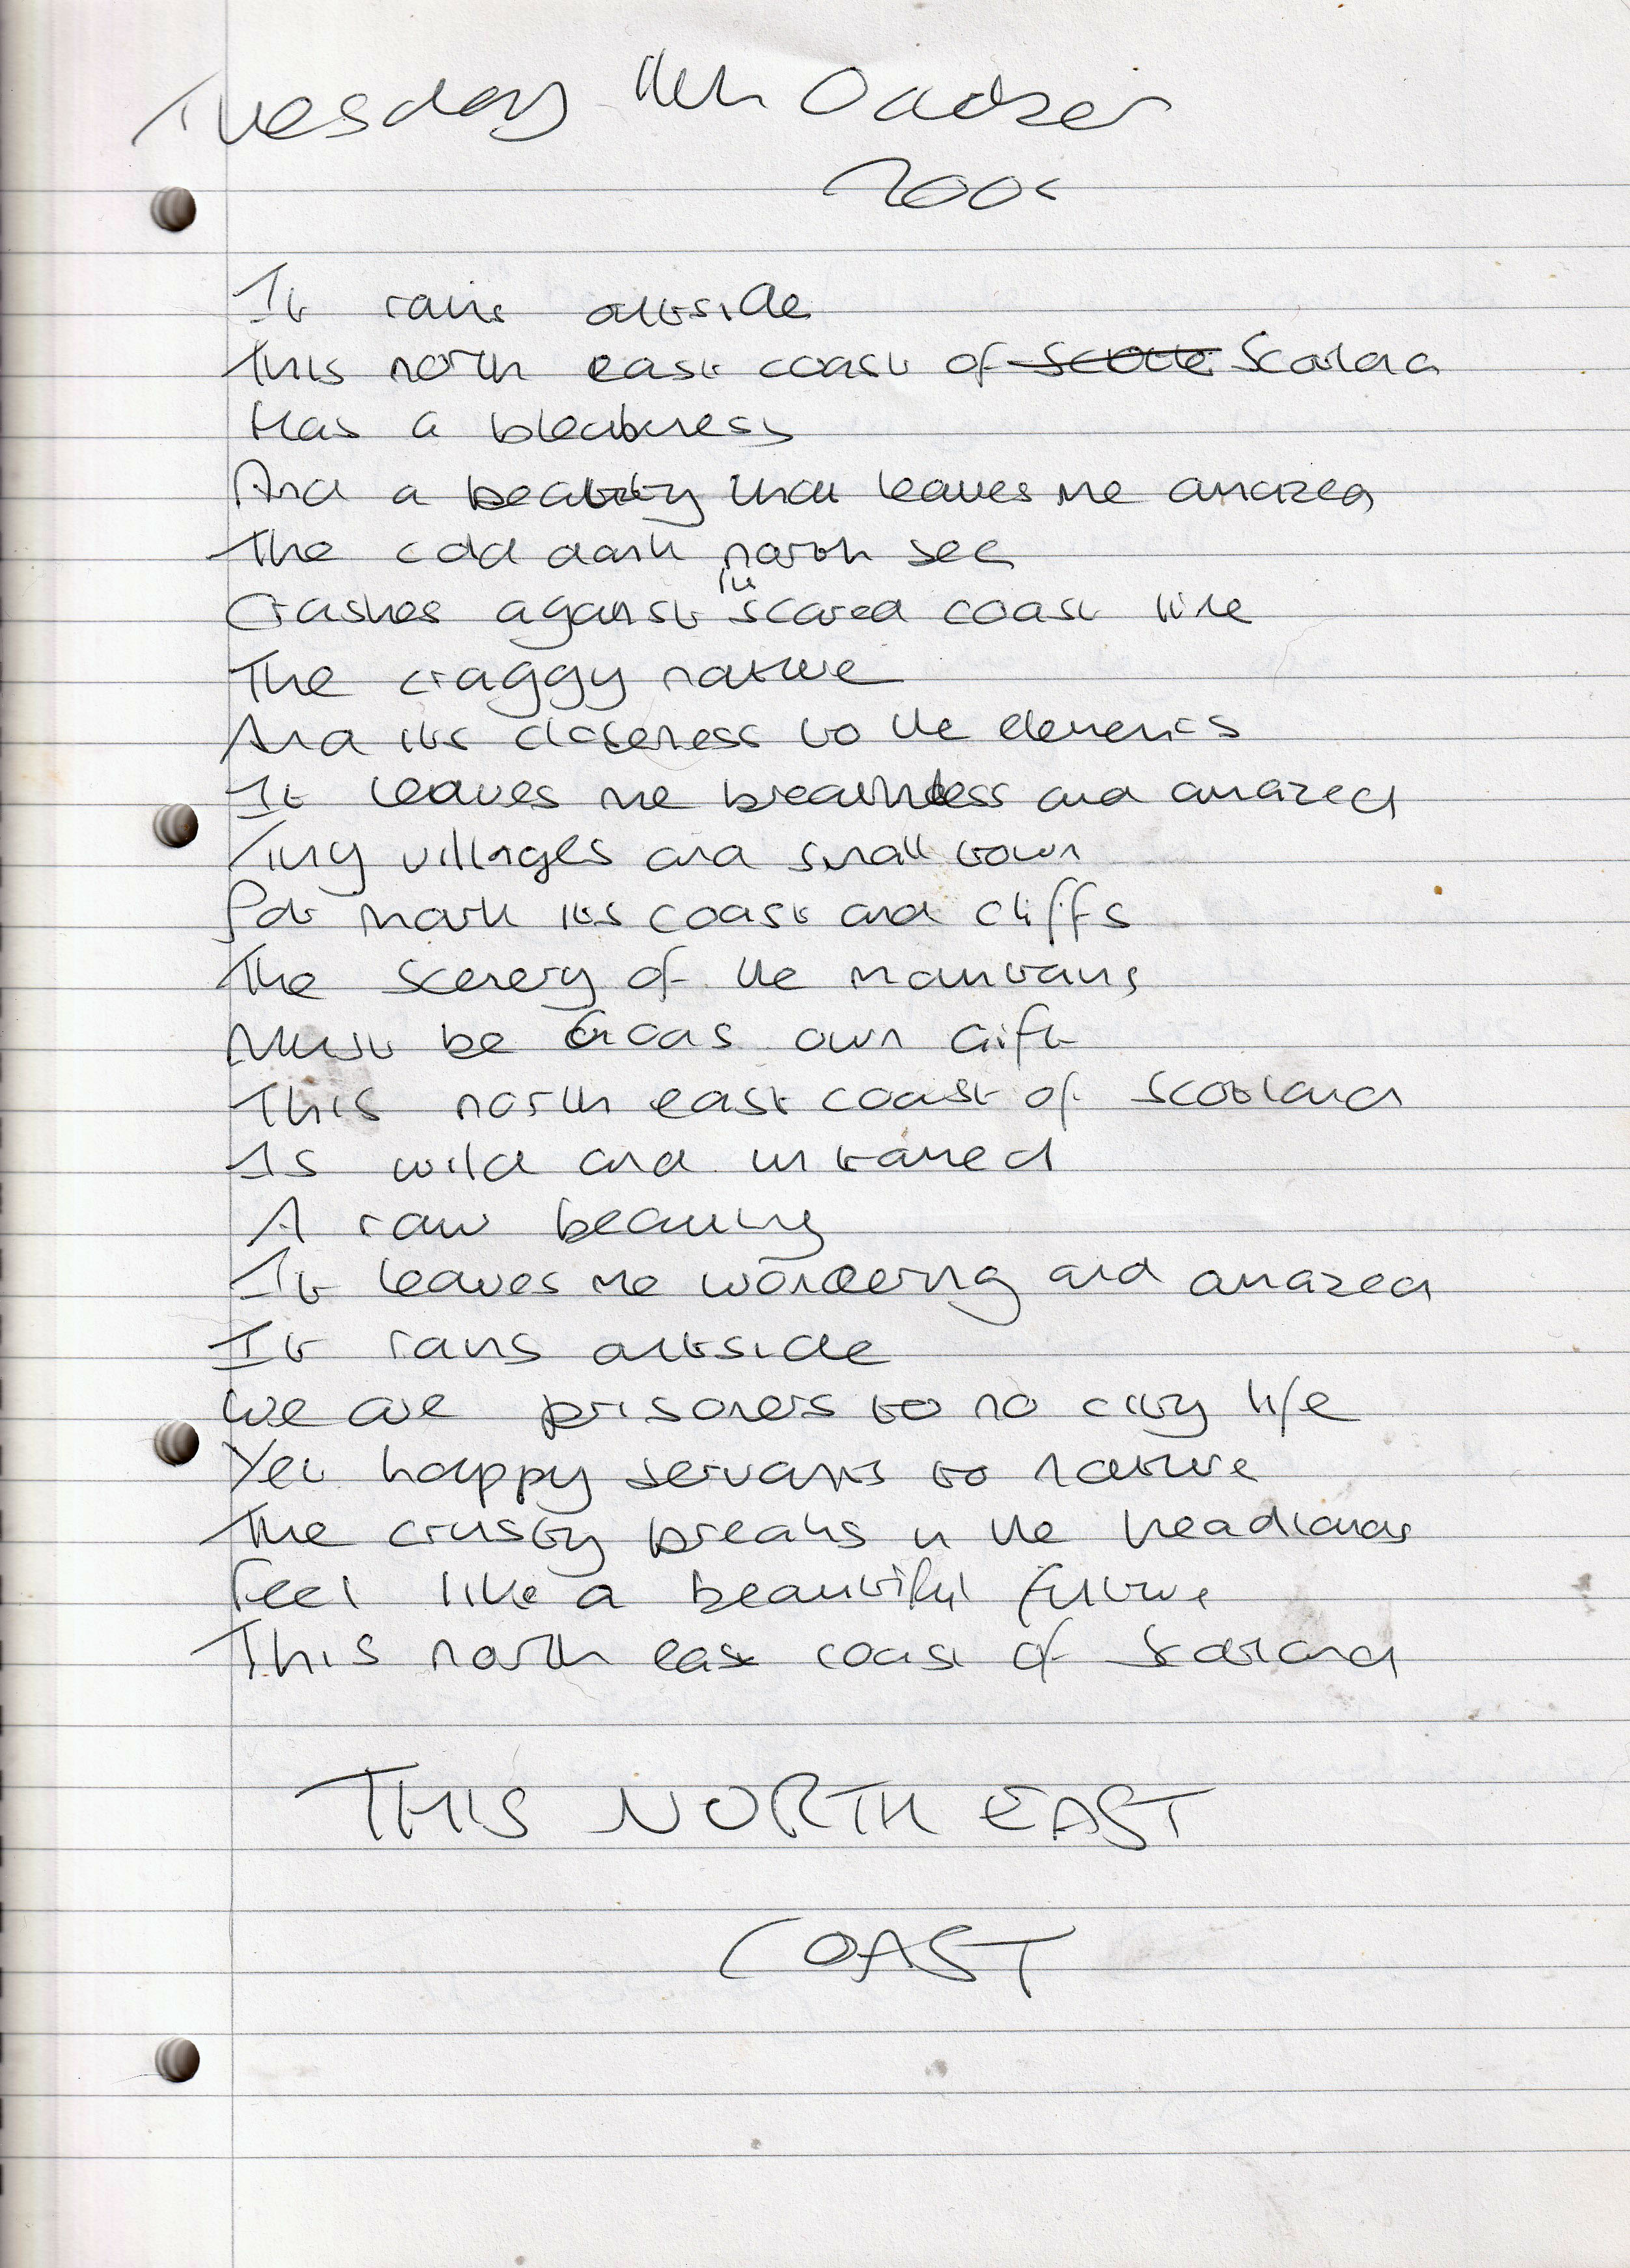 Tuesday 11th October
2005
It rains outside
This north east coast of Scotla Scotland
Has a bleakness
And a beauty that leaves me amazed
The cold dark north sea
Crashes against its scared coast line
The craggy nature
And its closeness to the elements
It leaves me breathless and amazed
Tiny villages and small town
Pot mark its coast and cliffs
The scenery of the mountains
Must be Gods own Gift
This north east coast of Scotland
Is wild and untamed
A raw beauty
It leaves me wondering and amazed
It rains outside
We are prisoners to no city life
Yet happy servants to nature
The crusty breaks in the headlands
Feel like a beautiful future
This north east coast of Scotland
THIS NORTH EAST
COAST